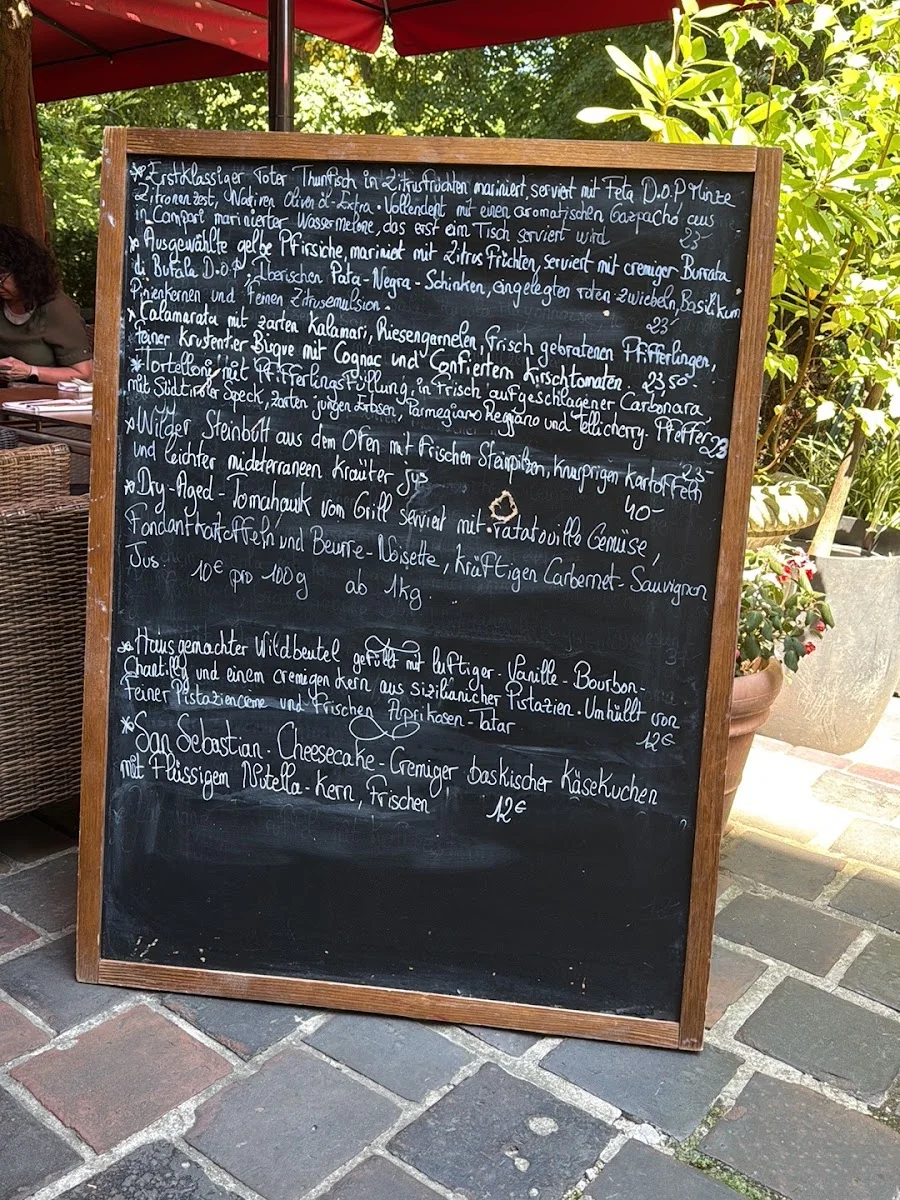 * Erstklassiger roter Thunfisch in Zitrusfrüchten mariniert, serviert mit Feta D.O.P Minze
Zitronenzest, Nativen Oliven öl-Extra. Vollendent mit einen aromatischen Gazpacho aus
in Campari marinierter Wassermelone, das erst ein Tisch serviert wird 25-
* Ausgewählte gelbe Pfirsiche, mariniet mit Zitrus Früchten, serviert mit cremiger Burrata
di Bufala D.O.P, Iberischen Pata-Negra-Schinken, eingelegten roten zwiebeln, Basilikum
Pinienkernen und feinen Zitrusemulsion. 23-
* Calamarata mit zarten Kalamari, Riesengarnelen, frisch gebratenen Pfifferlingen,
feiner Krustentier Bisque mit Cognac und Confiertem Kirschtomaten. 23,50-
* Tortelloni mit Pfifferlings Füllung, in frisch aufgeschlagener Carbonara,
mit Südtiroler Speck, zarten jungen Erbsen, Parmegiano Reggiano und Tellicherry. Pfeffer 23
23-
* Wilder Steinbutt aus dem Ofen mit frischen Steinpilzen, knusprigen Kartoffeln
und leichter mideterraneen Kräuter jus 40-
* Dry-Aged-Tomahawk vom Grill serviert mit ratatouille Gemüse,
Fondantkartoffeln und Beurre-Noisette, kräftigen Carbernet-Sauvignon
Jus. 10€ pro 100g ab 1kg
* Hausgemachter Wildbeutel gefüllt mit luftiger Vanille-Bourbon-
Chantilly und einem cremigen kern aus sizilianicher Pistazien. Umhüllt von
feiner Pistaziencreme und frischen Aprikosen-Tatar 12€
* San Sebastian-Cheesecake-Cremiger baskischer Käsekuchen
mit Flüssigem Nutella-Kern, frischen 12€